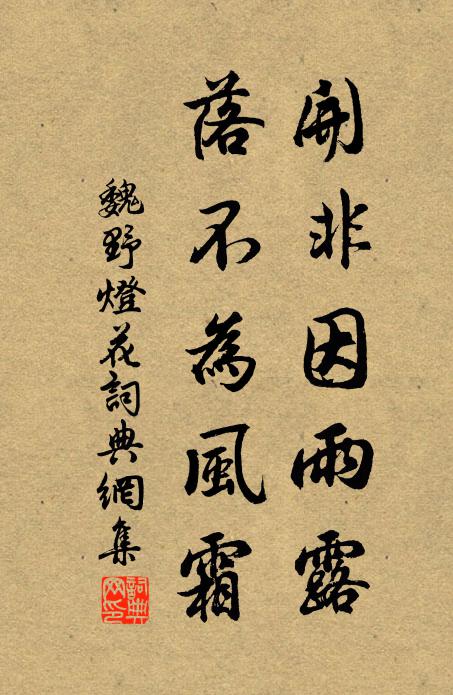 開非因雨露
落不為風霜
魏野燈花詞典網集
詞典网印